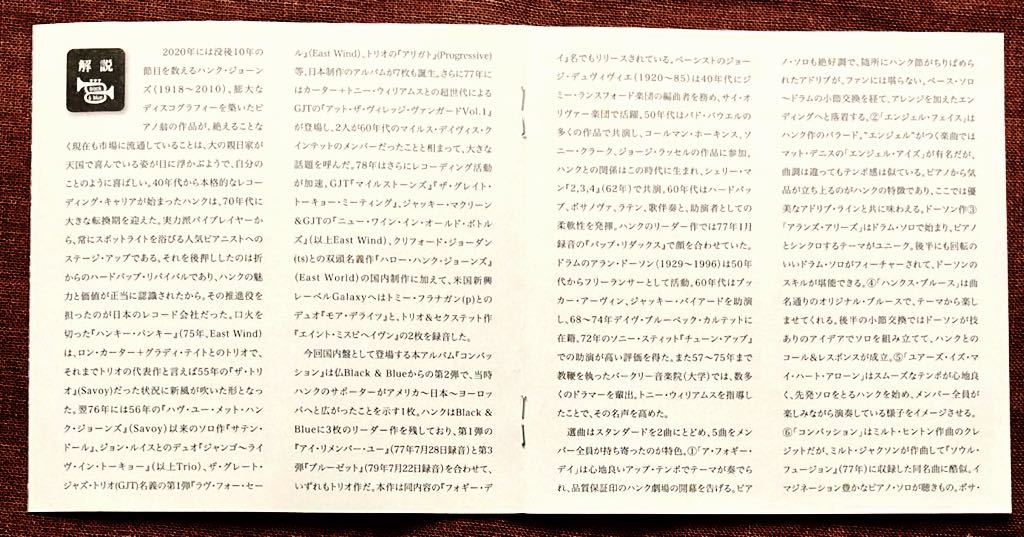 解説
black & blue
2020年には没後10年の
節目を数えるハンク・ジョーン
ズ(1918〜2010)。膨大な
ディスコグラフィーを築いたピ
アノ翁の作品が、絶えることな
く現在も市場に流通していることは、大の親日家が
天国で喜んでいる姿が目に浮かぶようで、自分の
ことのように喜ばしい。40年代から本格的なレコー
ディング・キャリアが始まったハンクは、70年代に
大きな転換期を迎えた。実力派バイプレイヤーか
ら、常にスポットライトを浴びる人気ピアニストへの
ステージ・アップである。それを後押ししたのは折
からのハードバップ・リバイバルであり、ハンクの魅
力と価値が正当に認識されたから。その推進役を
担ったのが日本のレコード会社だった。口火を
切った『ハンキー・パンキー』(75年、East Wind)
は、ロン・カーター+グラディ・テイトとのトリオで、
それまでトリオの代表作と言えば55年の『ザ・トリ
オ』(Savoy)だった状況に新風が吹いた形となっ
た。翌76年には56年の『ハヴ・ユー・メット・ハン
ク・ジョーンズ』(Savoy)以来のソロ作『サテン・
ドール』、ジョン・ルイスとのデュオ『ジャンゴ〜ライ
ヴ・イン・トーキョー』(以上Trio)、ザ・グレート・
ジャズ・トリオ(GJT)名義の第1弾『ラヴ・フォー・セー
ル』(East Wind)、トリオの『アリガト』(Progressive)
等、日本制作のアルバムが7枚も誕生。さらに77年に
はカーター+トニー・ウィリアムスとの超世代による
GJTの『アット・ザ・ヴィレッジ・ヴァンガードVol.1』
が登場し、2人が60年代のマイルス・デイヴィス・ク
インテットのメンバーだったことと相まって、大きな
話題を呼んだ。78年はさらにレコーディング活動
が加速。GJT『マイルストーンズ』『ザ・グレイト・
トーキョー・ミーティング』、ジャッキー・マクリーン
&GJTの『ニュー・ワイン・イン・オールド・ボトル
ズ』(以上East Wind)、クリフォード・ジョーダン
(ts)との双頭名義作『ハロー・ハンク・ジョーンズ』
(East World)の国内制作に加えて、米国新興
レーベルGalaxyへはトミー・フラナガン(p)との
デュオ『モア・デライツ』と、トリオ&セクステット作
『エイント・ミスビヘイヴン』の2枚を録音した。
今回国内盤として登場する本アルバム『コンパッ
ション』は仏Black & Blueからの第2弾で、当時
ハンクのサポーターがアメリカ〜日本〜ヨーロッ
パへと広がったことを示す1枚。ハンクはBlack &
Blueに3枚のリーダー作を残しており、第1弾の
『アイ・リメンバー・ユー』(77年7月28日録音)と第3
弾『ブルーゼット』(79年7月22日録音)を合わせて、
いずれもトリオ作だ。本作は同内容の『フォギー・デ
イ』名でもリリースされている。ベーシストのジョー
ジ・デュヴィヴィエ(1920〜85)は40年代にジ
ミー・ランスフォード楽団の編曲者を務め、サイ・オ
リヴァー楽団で活躍。50年代はバド・パウエルの
多くの作品で共演し、コールマン・ホーキンス、ソ
ニー・クラーク、ジョージ・ラッセルの作品に参加。
ハンクとの関係はこの時代に生まれ、シェリー・マ
ン『2,3,4』(62年)で共演。60年代はハードバッ
プ、ボサノヴァ、ラテン、歌伴奏と、助演者としての
柔軟性を発揮。ハンクのリーダー作では77年1月
録音の『バップ・リダックス』で顔を合わせていた。
ドラムのアラン・ドーソン(1929〜1996)は50年代
からフリーランサーとして活動。60年代はブッ
カー・アーヴィン、ジャッキー・バイアードを助演
し、68〜74年デイヴ・ブルーベック・カルテットに
在籍。72年のソニー・スティット『チューン・アップ』
での助演が高い評価を得た。また57〜75年まで
教鞭を執ったバークリー音楽院(大学)では、数多
くのドラマーを輩出。トニー・ウィリアムスを指導し
たことで、その名声を高めた。
選曲はスタンダードを2曲にとどめ、5曲をメン
バー全員が持ち寄ったのが特色。①「ア・フォギー・
デイ」は心地良いアップ・テンポでテーマが奏でら
れ、品質保証印のハンク劇場の開幕を告げる。ピア
ノ・ソロも絶好調で、随所にハンク節がちりばめら
れたアドリブが、ファンには堪らない。ベース・ソロ
〜ドラムの小節交換を経て、アレンジを加えたエン
ディングへと落着する。②「エンジェル・フェイス」は
ハンク作のバラード。"エンジェル"がつく楽曲では
マット・デニスの「エンジェル・アイズ」が有名だが、
曲調は違ってもテンポ感は似ている。ピアノから気
品が立ち上るのがハンクの特徴であり、ここでは優
美なアドリブ・ラインと共に味わえる。ドーソン作③
「アランズ・アリーズ」はドラム・ソロで始まり、ピアノ
とシンクロするテーマがユニーク。後半にも回転の
いいドラム・ソロがフィーチャーされて、ドーソンの
スキルが堪能できる。④「ハンクス・ブルース」は曲
名通りのオリジナル・ブルースで、テーマから楽し
ませてくれる。後半の小節交換ではドーソンが技
ありのアイデアでソロを組み立てて、ハンクとの
コール&レスポンスが成立。⑤「ユアーズ・イズ・マ
イ・ハート・アローン」はスムーズなテンポが心地良
く、先発ソロをとるハンクを始め、メンバー全員が
楽しみながら演奏している様子をイメージさせる。
⑥「コンパッション」はミルト・ヒントン作曲のクレ
ジットだが、ミルト・ジャクソンが作曲して『ソウル・
フュージョン』(77年)に収録した同名曲に酷似。イ
マジネーション豊かなピアノ・ソロが聴きもの。ボサ・